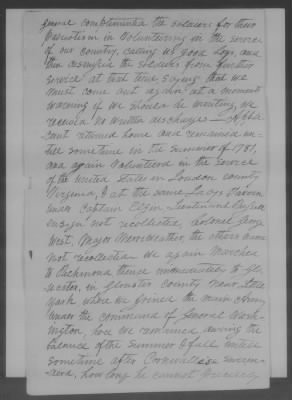 general complimented the soldiers for their
Patriotism in Volunteering in the service
of our country, calling us good boys, and
then dismissed the soldiers from further
service at that time, saying that we
must come out again at a moments
warning if we should be wanting, we
received no written discharge
returned home and remained un-
till sometime in the summer of 1781,
and again Volunteered in the service
of the United States in Loudon county
Virginia, & at the same
under Captain Elgin, Lieutenant
Ensign not recollected, Colonel
West, Major Merriweather, the others names
not recollected we again Marched
to Richmond thence immediately to Glo
ucester, in Gloucester county near Little
York where we joined the main Army
under the command of General Wash-
ington, here we remained during the
balance of the summer & fall untill
sometime after Cornwallises surren-
dered, how long he cannot